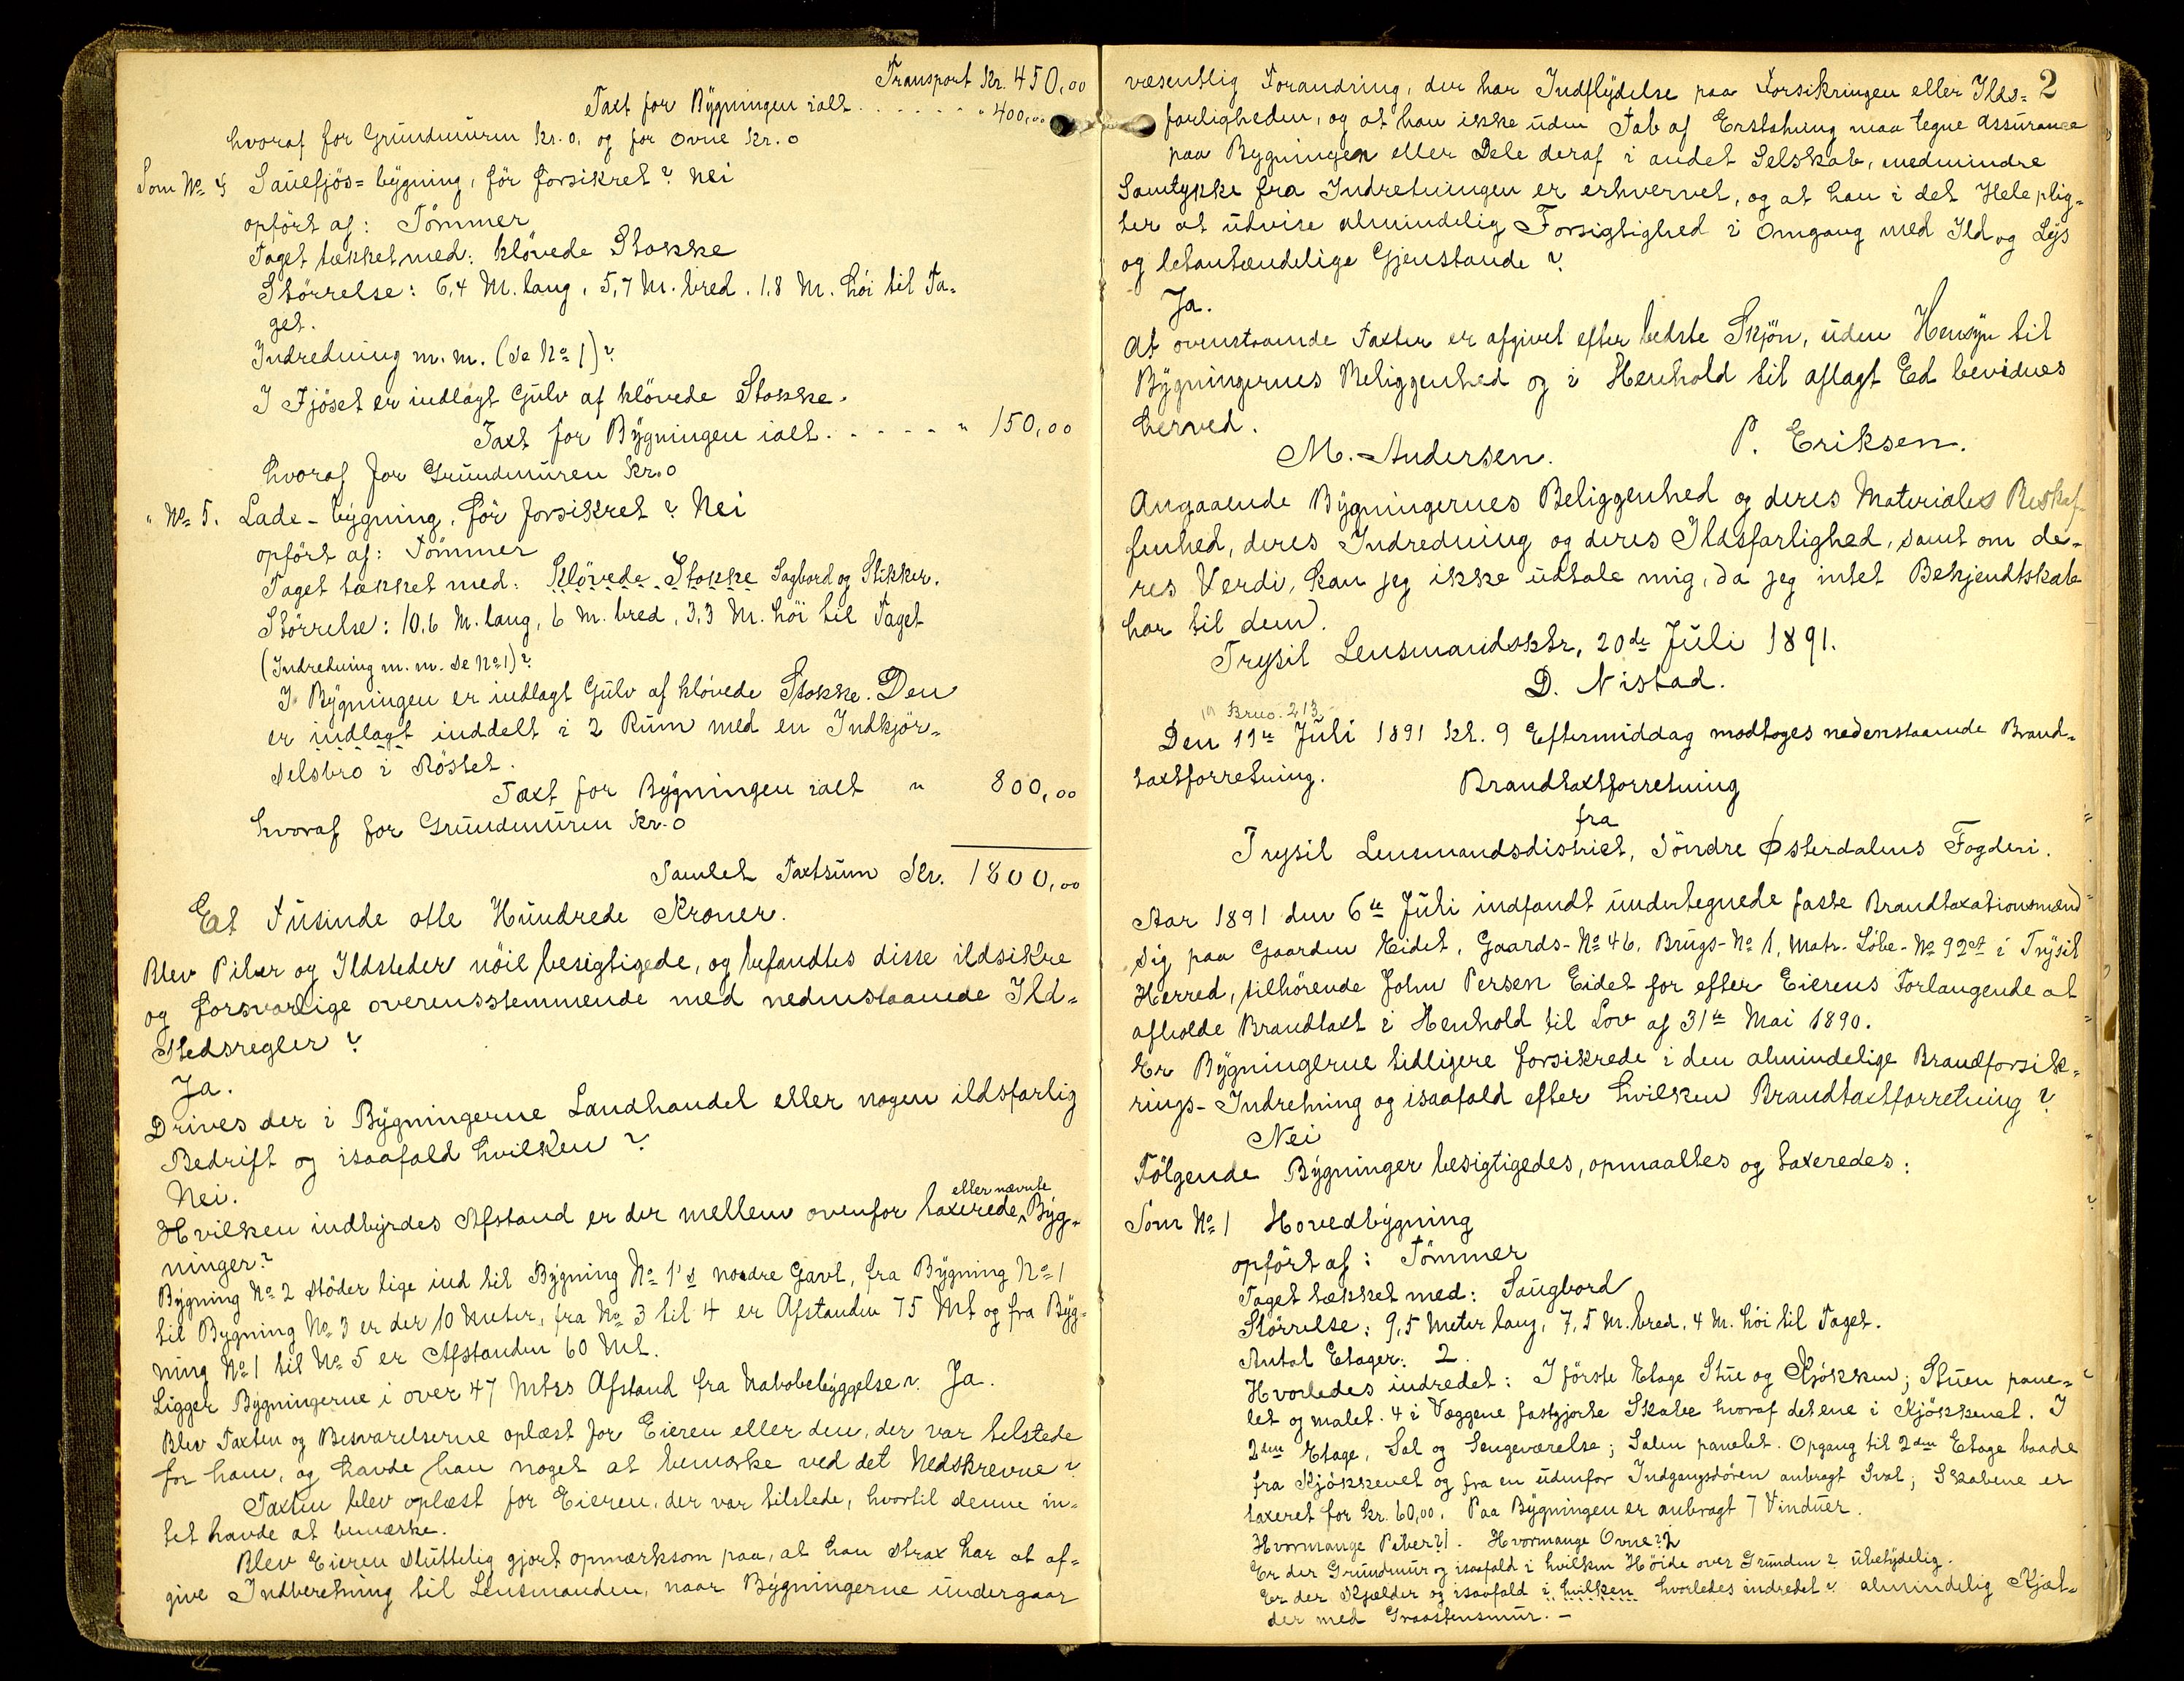 Transport Kr. 450,00
Taxt for Bygningen ialt . . . . . . . " 400,00
hvoraf for Grundmuren Kr. 0, og for Ovne Kr. 0
Som No 4 Sauefjös=bygning, för forsikret? Nei
opfört af: Tömmer
Taget tækket med: klövede Stokke
Störrelse: 6,4 M. lang, 5,7 M. bred. 1,8 M. höi til Ta-
get.
Indredning m. m. (se No 1)?
I Fjöset er indlagt Gulv af klövede Stokke.
Taxt for Bygningen ialt. . . . . . " 150,00
hvoraf for Grundmuren Kr. 0
" No 5. Lade-bygning, för forsikret? Nei
opfört af: Tömmer
Taget tækket med: Klövede Stokke Sagbord og Stikker.
Störrelse: 10,6 M. lang, 6 M. bred, 3,3 M. höi til Taget
(Indredning m. m. se No 1)?
I Bygningen er indlagt Gulv af klövede Stokke. Den
er indlagt inddelt i 2 Rum med en Indkjör-
selsbro i Röstet.
Taxt for Bygningen ialt " 800,00
hvoraf for Grundmuren Kr. 0
Samlet Taxtsum Kr. 1800,00
Et Tusinde otte Hundrede Kroner.
Blev Piber og Ildsteder nöie besigtigede, og befandtes disse ildsikre
og forsvarlige overensstemmende med nedenstaaende Ild-
stedsregler?
Ja.
Drives der i Bygningerne Landhandel eller nogen ildsfarlig
Bedrift og isaafald hvilken?
Nei.
eller nævnte
Hvilken indbyrdes Afstand er der mellem ovenfor taxerede Byg-
ninger?
Bygning No 2 stöder lige ind til Bygning No 1's nordre Gavl, fra Bygning No 1
til Bygning No 3 er der 10 Meter, fra No 3 til 4 er Afstanden 75 Mt og fra Byg-
ning No 1 til No 5 er Afstanden 60 Mt.
Ligger Bygningerne i over 47 Mtrs Afstand fra Nabobebyggelse? Ja.
Blev Taxten og Besvarelserne oplæst for Eieren eller den, der var tilstede
for ham, og havde han noget at bemærke ved det Nedskrevne?
Taxten blev oplæst for Eieren, der var tilstede, hvortil denne in-
tet havde at bemærke.
Blev Eieren sluttelig gjort opmærksom paa, at han strax har at af-
give Indberetning til Lensmanden, naar Bygningerne undergaar
2
væsentlig Forandring, der har Indflydelse paa Forsikringen eller Ilds-
farligheden, og at han ikke uden Tab af Erstatning maa tegne Assurance
paa Bygningen eller Dele deraf i andet Selskab, medmindre
Samtykke fra Indretningen er erhvervet, og at han i det Hele plig-
ter at udvise almindelig Forsigtighed i Omgang med Ild og Lys
og letantændelige Gjenstande?
Ja.
At ovenstaaende Taxter er afgivet efter bedste Skjön, uden Hensyn til
Bygningernes Beliggenhed og i Henhold til aflagt Ed bevidnes
herved.
M. Andersen. P. Eriksen.
Angaaende Bygningernes Beliggenhed og deres Materiales Beskaf-
fenhed, deres Indredning og deres Ildsfarlighed, samt om de-
res Verdi, kan jeg ikke udtale mig, da jeg intet Bekjendtskab
har til dem.
Trysil Lensmandsktr, 20de Juli 1891.
D. Nistad.
Bruo. 213
Den 11te Juli 1891 Kl. 9 Eftermiddag modtoges nedenstaaende Brand-
taxtforretning.
Brandtaxtforretning
fra
Trysil Lensmandsdistrict, Söndre Østerdalens Fogderi.
Aar 1891 den 6te Juli indfandt undertegnede faste Brandtaxationsmænd
sig paa Gaarden Eidet, Gaards-No 46, Brugs-No 1, Matr. Löbe-No 92 i Trysil
Herred, tilhörende John Persen Eidet for efter Eierens Forlangende at
afholde Brandtaxt i Henhold til Lov af 31te Mai 1890.
Er Bygningerne tidligere forsikrede i den almindelige Brandforsik-
rings-Indretning og isaafald efter hvilken Brandtaxtforretning?
Nei
Fölgende Bygninger besigtigedes, opmaaltes og taxeredes:
Som No 1 Hovedbygning
opfört af: Tömmer
Taget tækket med: Saugbord
Störrelse: 9,5 Meter lang, 7,5 M. bred, 4 M. höi til Taget.
Antal Etager: 2.
Hvorledes indredet: I förste Etage Stue og Kjökken; Stuen pane-
let og malet. 4 i Væggene fastgjorte Skabe hvoraf det ene i Kjökkenet. I
2den Etage, Sal og Sengeværelse; Salen panelet. Opgang til 2den Etage baade
fra Kjökkenet og fra en udenfor Indgangsdören anbragt Sval; Skabene er
taxeret for Kr. 60,00. Paa Bygningen er anbragt 7 Vinduer.
Hvormange Piber? 1. Hvormange Ovne? 2
Er der Grundmur og isaafald i hvilken Höide over Grunden? ubetydelig.
Er der Kjælder og isaafald i hvilken hvorledes indredet? almindelig Kjæl-
der med Graastensmur. -